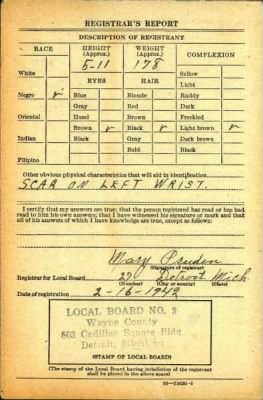 REGISTRAR'S REPORT
DESCRIPTION OF REGISTRANT
RACE HEIGHT (Approx.) WEIGHT (Approx.) COMPLEXION
5-11 178
White EYES HAIR Sallow
Light
Negro ✓ Blue Blonde Ruddy
Gray Red Dark
Oriental Hazel Brown Freckled
Brown ✓ Black ✓ Light brown ✓
Indian Black Gray Dark brown
Bald Black
Filipino
Other obvious physical characteristics that will aid in identification
SCAR ON LEFT WRIST.
I certify that my answers are true; that the person registered has read or has had
read to him his own answers; that I have witnessed his signature or mark and that
all of his answers of which I have knowledge are true, except as follows:
Mary Pruden
(Signature of registrar)
Registrar for Local Board 29 Detroit Mich
(Number) (City or county) (State)
Date of registration 2-16-1942
LOCAL BOARD NO. 3
Wayne County
803 Cadillac Square Bldg
Detroit, Michigan
(STAMP OF LOCAL BOARD)
(The stamp of the Local Board having jurisdiction of the registrant
shall be placed in the above space)